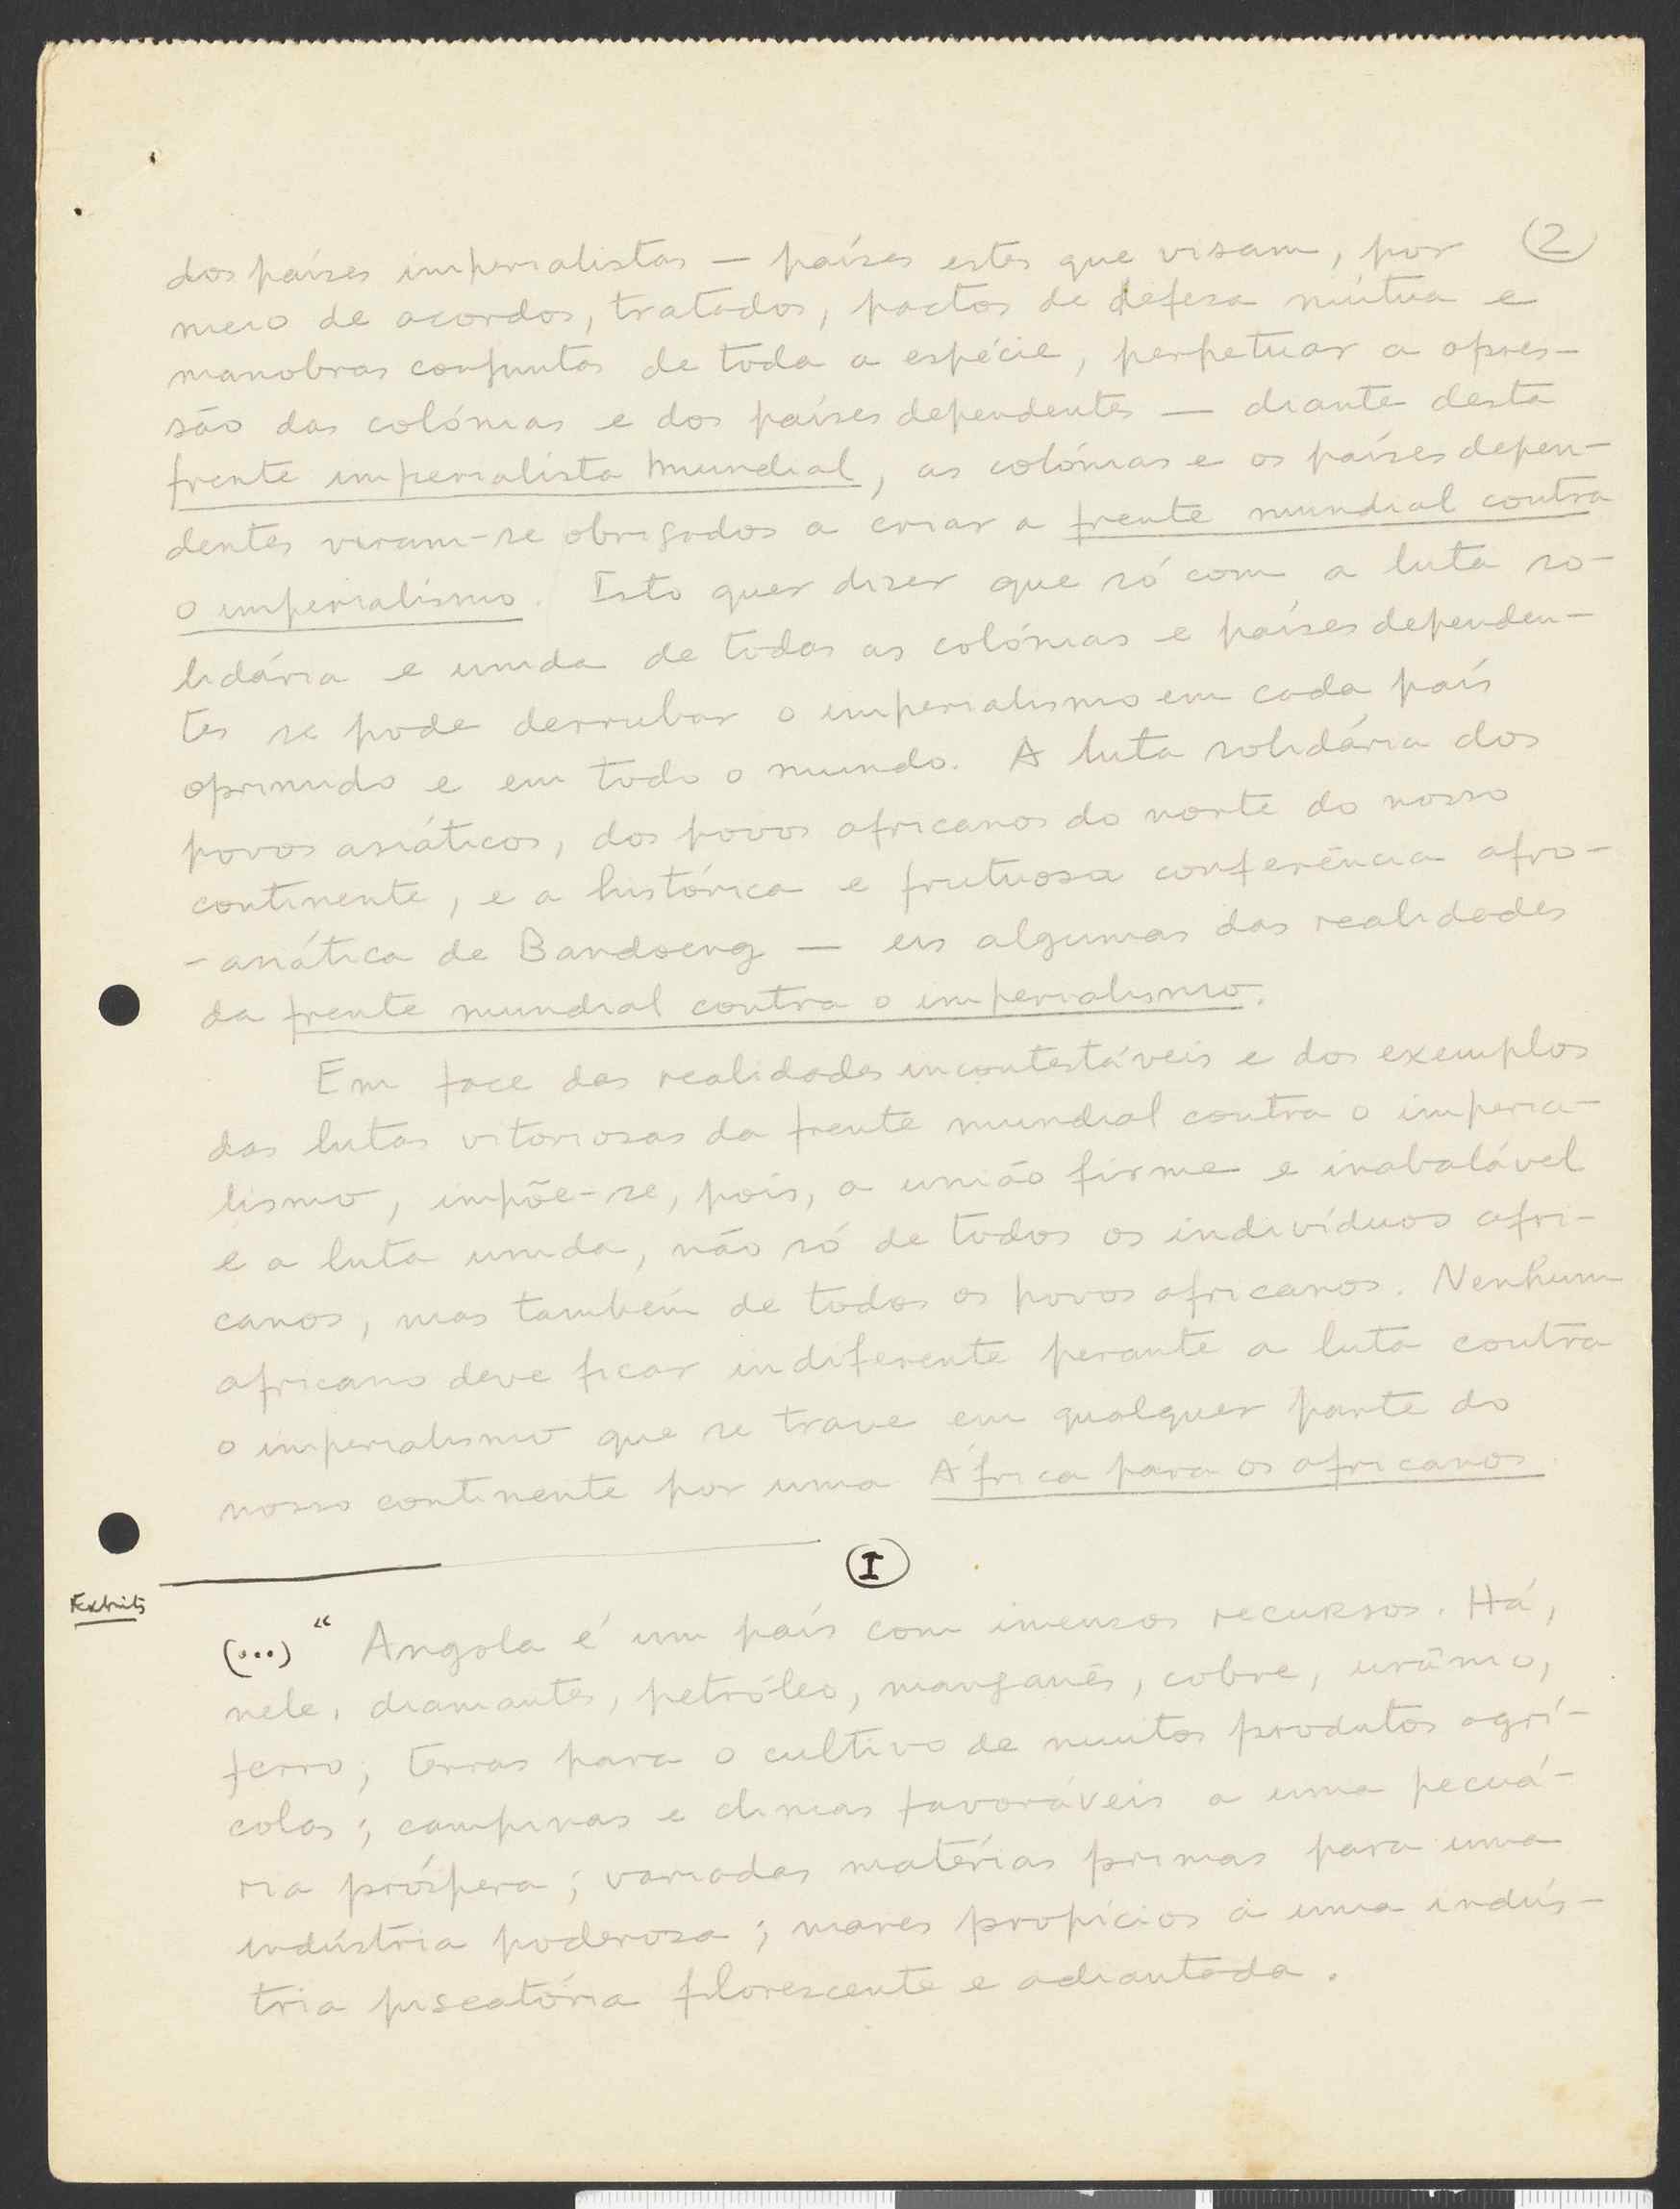 (2)
dos países imperialistas — países estes que visam, por
meio de acordos, tratados, pactos de defesa mútua e
manobras conjuntas de toda a espécie, perpetuar a opres-
são das colónias e dos países dependentes — diante desta
frente imperialista mundial, as colónias e os países depen-
dentes viram-se obrigados a criar a frente mundial contra
o imperialismo. Isto quer dizer que só com a luta so-
lidária e unida de todas as colónias e países dependen-
tes se pode derrubar o imperialismo em cada país
oprimido e em todo o mundo. A luta solidária dos
povos asiáticos, dos povos africanos do norte do nosso
continente, e a histórica e frutuosa conferência afro-
-asiática de Bandoeng — eis algumas das realidades
da frente mundial contra o imperialismo.
Em face das realidades incontestáveis e dos exemplos
das lutas vitoriosas da frente mundial contra o imperia-
lismo, impõe-se, pois, a união firme e inabalável
e a luta unida, não só de todos os indivíduos afri-
canos, mas também de todos os povos africanos. Nenhum
africano deve ficar indiferente perante a luta contra
o imperialismo que se trave em qualquer parte do
nosso continente por uma África para os africanos.
(I)
(...) " Angola é um país com imensos recursos. Há,
nele, diamantes, petróleo, manganês, cobre, urânio,
ferro; terras para o cultivo de muitos produtos agrí-
colas; campinas e climas favoráveis a uma pecuá-
ria próspera; variadas matérias primas para uma
indústria poderosa; mares propícios a uma indús-
tria piscatória florescente e adiantada.